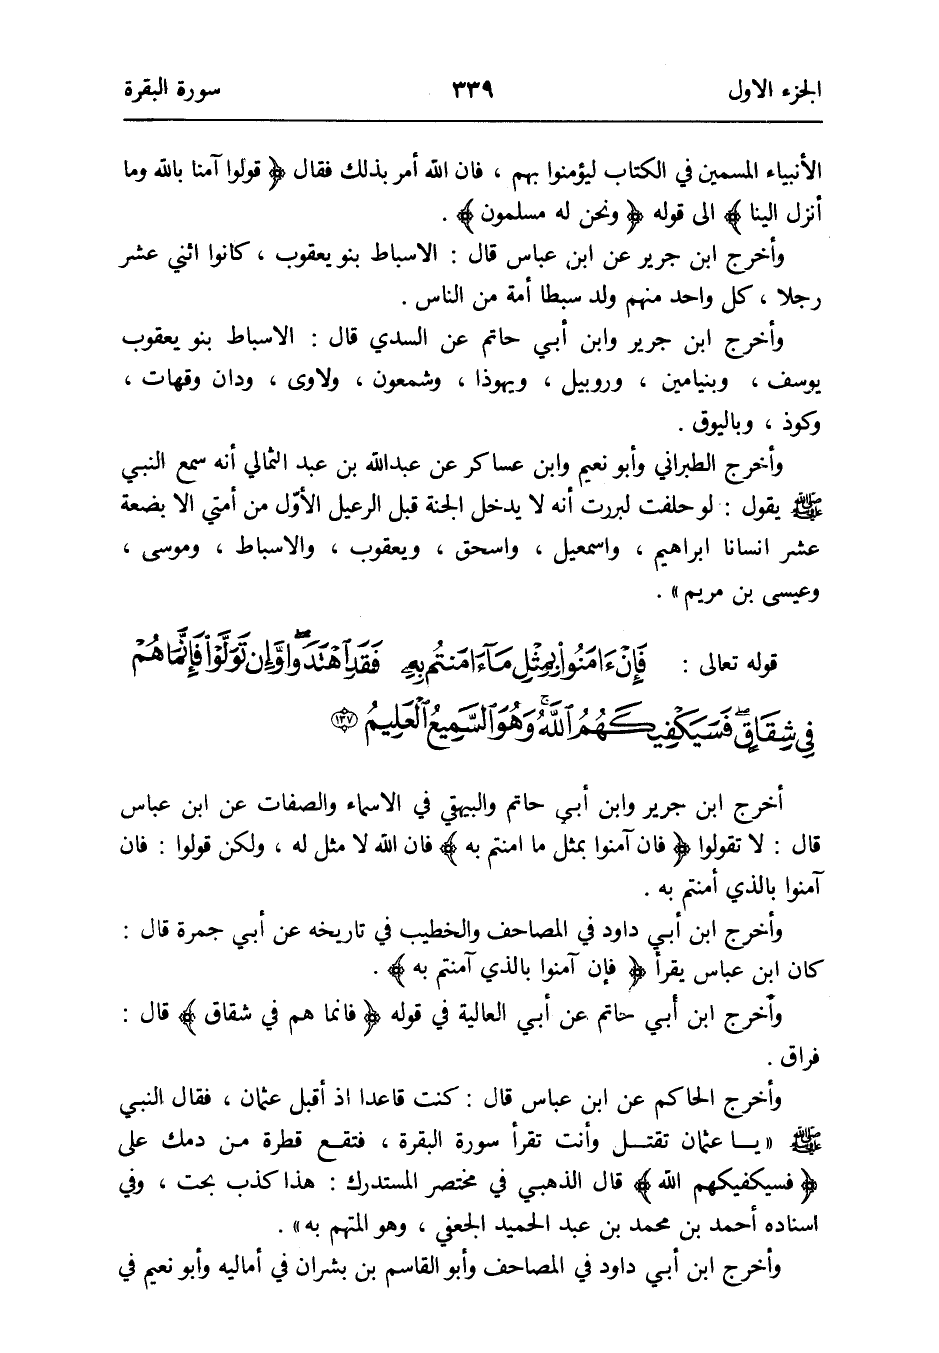 الجزء الاول ٣٣٩ سورة البقرة
الأنبياء المسمين في الكتاب ليؤمنوا بهم ، فان الله أمر بذلك فقال ﴿ قولوا آمنا بالله وما
أنزل الينا ﴾ الى قوله ﴿ ونحن له مسلمون ﴾ .
وأخرج ابن جرير عن ابن عباس قال : الاسباط بنو يعقوب ، كانوا اثني عشر
رجلا ، كل واحد منهم ولد سبطا أمة من الناس .
وأخرج ابن جرير وابن أبي حاتم عن السدي قال : الاسباط بنو يعقوب
يوسف ، وبنيامين ، وروبيل ، ويهوذا ، وشمعون ، ولاوى ، ودان وقهات ،
وكوذ ، وباليوق .
وأخرج الطبراني وأبو نعيم وابن عساكر عن عبدالله بن عبد الثمالي أنه سمع النبي
ﷺ يقول : لو حلفت لبررت أنه لا يدخل الجنة قبل الرعيل الأوّل من أمتي الا بضعة
عشر انسانا ابراهيم ، واسمعيل ، واسحق ، ويعقوب ، والاسباط ، وموسى ،
وعيسى بن مريم » .
قوله تعالى : فَإِنْ ءَامَنُوا۟ بِمِثْلِ مَآ ءَامَنتُم بِهِۦ فَقَدِ ٱهْتَدَوا۟ۖ وَّإِن تَوَلَّوْا۟ فَإِنَّمَا هُمْ
فِى شِقَاقٍۖ فَسَيَكْفِيكَهُمُ ٱللَّهُۚ وَهُوَ ٱلسَّمِيعُ ٱلْعَلِيمُ ١٣٧
أخرج ابن جرير وابن أبي حاتم والبيهقي في الاسماء والصفات عن ابن عباس
قال : لا تقولوا ﴿ فان آمنوا بمثل ما امنتم به ﴾ فان الله لا مثل له ، ولكن قولوا : فان
آمنوا بالذي أمنتم به .
وأخرج ابن أبي داود في المصاحف والخطيب في تاريخه عن أبي جمرة قال :
كان ابن عباس يقرأ ﴿ فإن آمنوا بالذي آمنتم به ﴾ .
وأخرج ابن أبي حاتم عن أبي العالية في قوله ﴿ فانما هم في شقاق ﴾ قال :
فراق .
وأخرج الحاكم عن ابن عباس قال : كنت قاعدا اذ أقبل عثمان ، فقال النبي
ﷺ « يا عثمان تقتل وأنت تقرأ سورة البقرة ، فتقع قطرة من دمك على
﴿ فسيكفيكهم الله ﴾ قال الذهبي في مختصر المستدرك : هذا كذب بحت ، وفي
اسناده أحمد بن محمد بن عبد الحميد الجعفي ، وهو المتهم به » .
وأخرج ابن أبي داود في المصاحف وأبو القاسم بن بشران في أماليه وأبو نعيم في